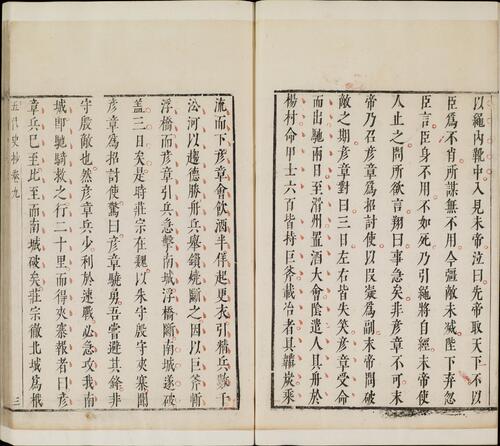 以繩內靴中入見末帝泣曰先帝取天下不以
臣為不肖所謀無不用今彊敵未滅陛下弃忽
臣言臣身不用不如死乃引繩將自經末帝使
人止之問所欲言翔曰事急矣非彥章不可末
帝乃召彥章為招討使以段凝為副末帝問破
敵之期彥章對曰三日左右皆失笑彥章受命
而出馳兩日至滑州置酒大會陰遣人具舟於
楊村命甲士六百皆持巨斧載冶者具韛炭乘
流而下彥章會飲酒半佯起更衣引精兵數千
沿河以趨德勝舟兵舉鎖燒斷之因以巨斧斬
浮橋而彥章引兵急擊南城浮橋斷南城遂破
蓋三日矣是時莊宗在魏以朱守殷守夾寨聞
彥章為招討使驚曰彥章驍勇吾嘗避其鋒非
守殷敵也然彥章兵少利於速戰必急攻我南
城即馳騎救之行二十里而得夾寨報者曰彥
章兵已至比至而南城破矣莊宗徹北城為栰
五代史抄卷九
三